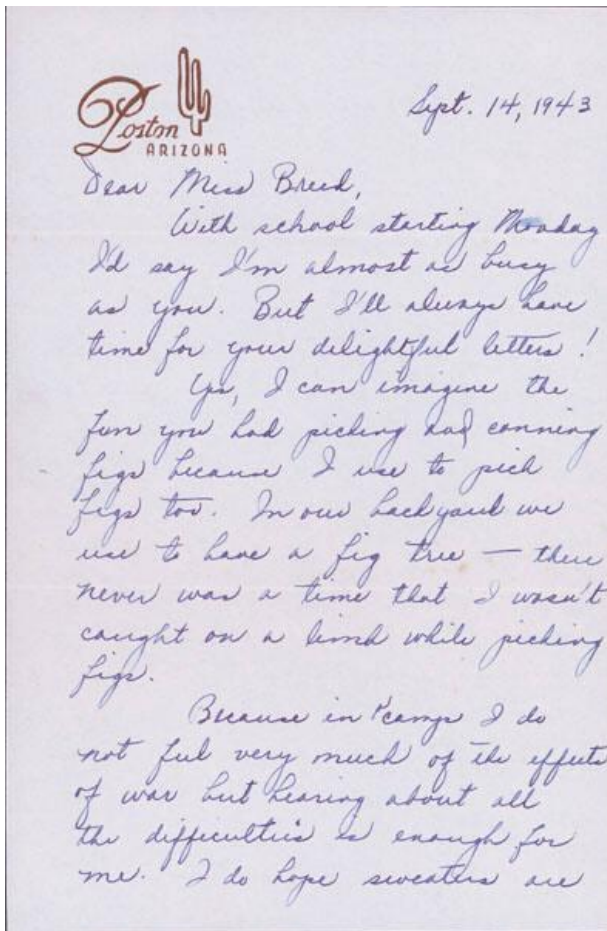 Poston
ARIZONA
Sept. 14, 1943
Dear Miss Breed,
With school starting Monday
I'd say I'm almost as busy
as you. But I'll always have
time for your delightful letters!
Yes, I can imagine the
fun you had picking and canning
figs because I use to pick
figs too. In our backyard we
use to have a fig tree — there
never was a time that I wasn't
caught on a limb while picking
figs.
Because in camp I do
not feel very much of the effects
of war but hearing about all
the difficulties is enough for
me. I do hope sweaters are